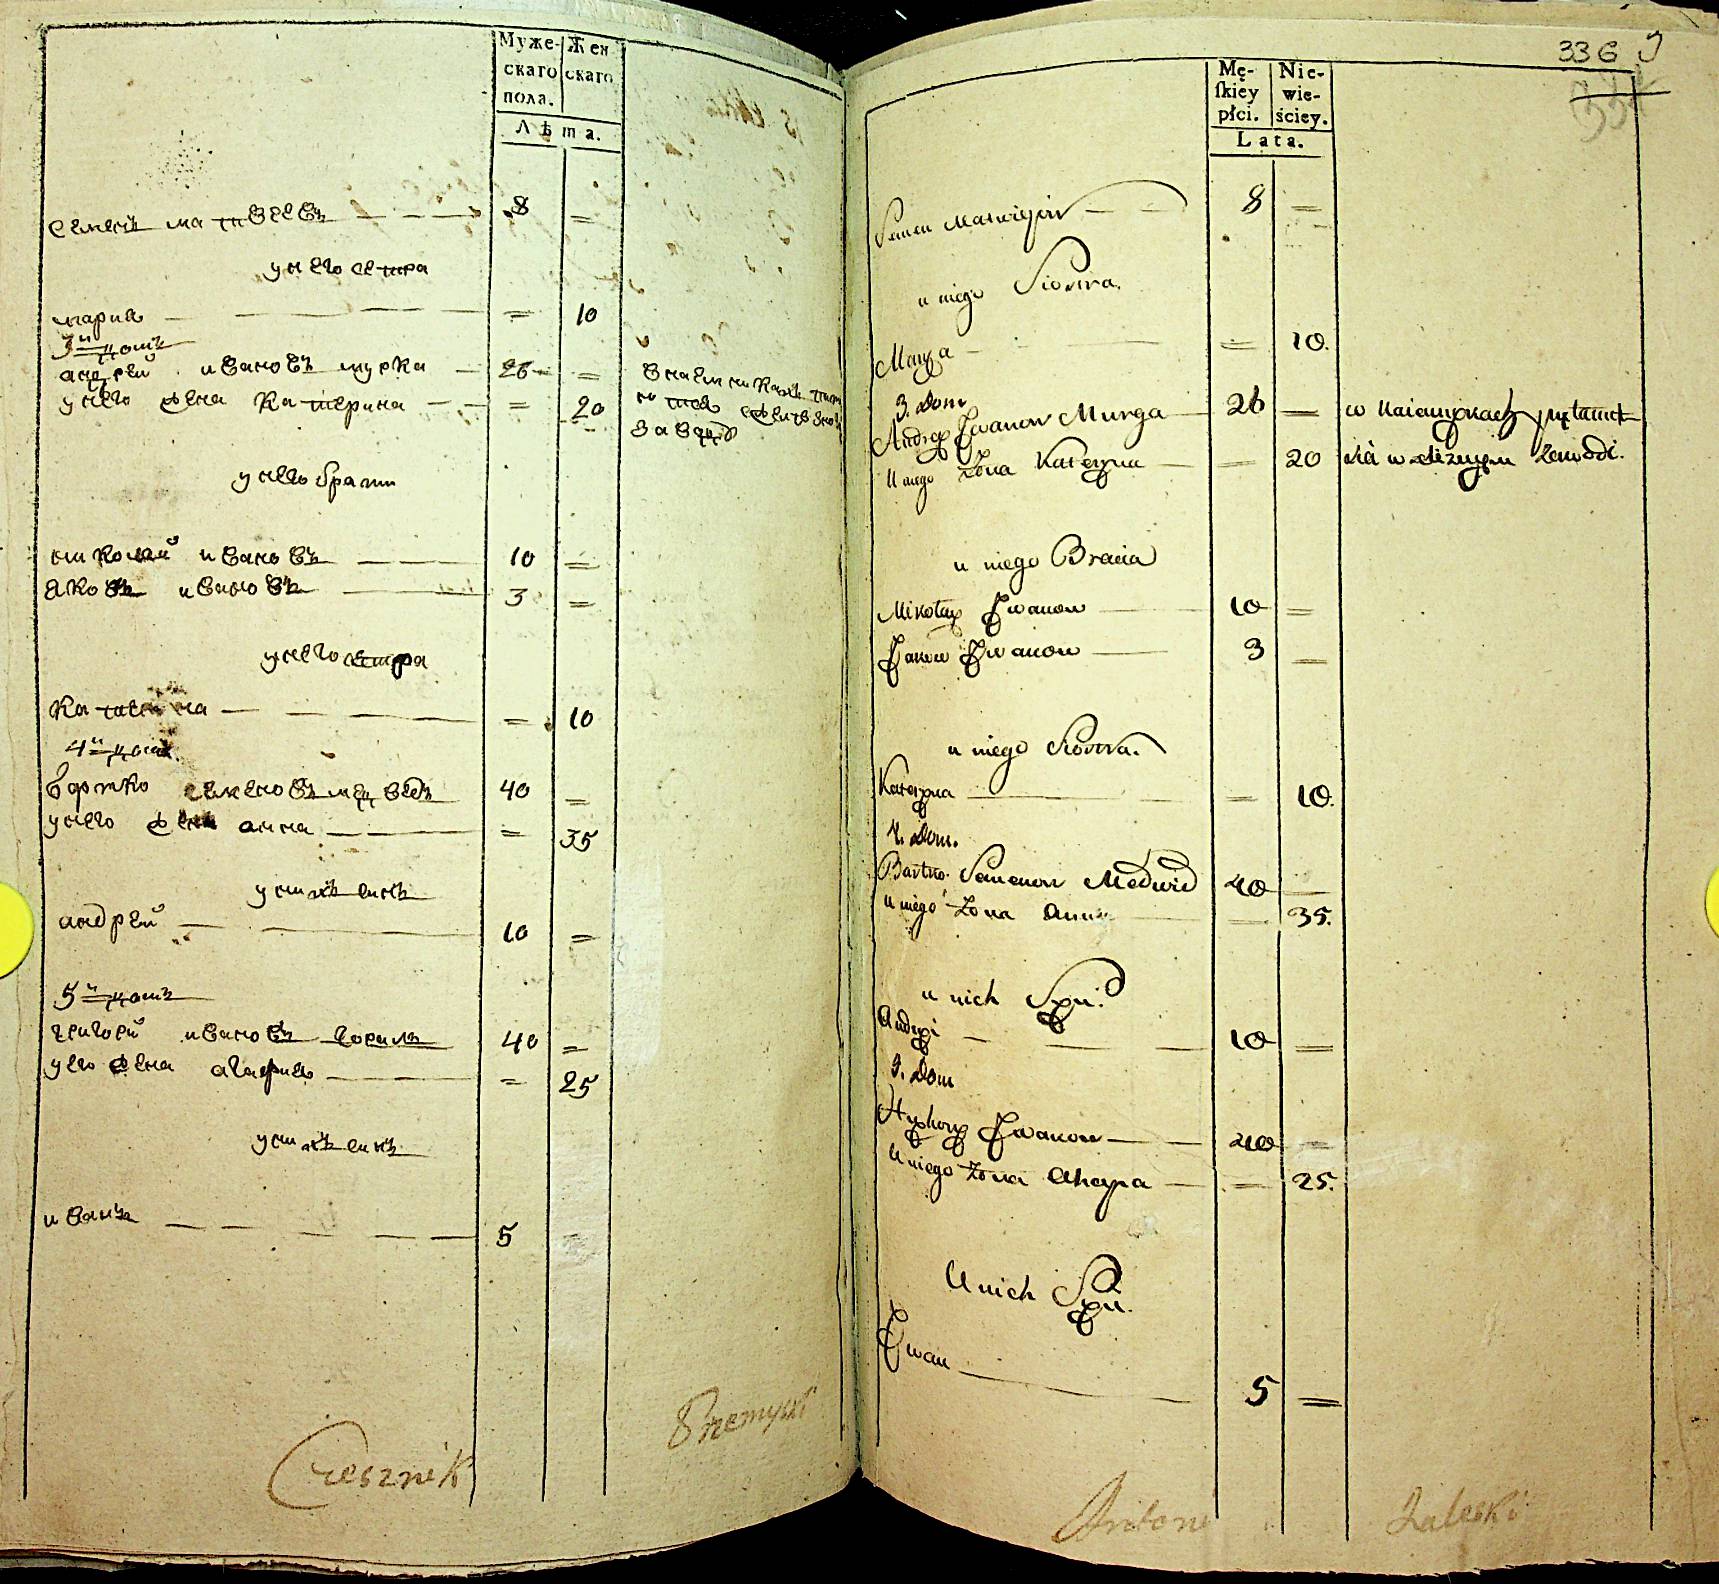 Муже-
скаго
пола.
Жен
скаго
Лѣта.
семенъ матвеевъ 8 =
унего сестра
мария = 10
3й домъ
андрей ивановъ мурка 26 =
унего жена катерина = 20
унего брати
николай ивановъ 10 =
яковъ ивановъ 3 =
унего сестра
катерина = 10
4й домъ
бортко семеновъ медведь 40 =
унего жена анна = 35
уних сынъ
андрей 10 =
5й домъ
григорей ивановъ 40 =
унего жена агафия = 25
уних сынъ
иванъ 5 =
Czesznik
Przemyski
336 9
Mę-
skiey
płci.
Nie-
wie-
ściey.
Lata.
Semen Matwiejow 8 =
u niego Siostra.
Marya = 10.
3. Dom
Andrey Jwanow Murga 26 =
U niego Żona Kateryna = 20
u niego Bracia
Mikołay Jwanow 10 =
Jakow Jwanow 3 =
u niego Siostra.
Kateryna = 10.
4. Dom.
Bartko Semenow Medwid 40 =
u niego Żona Anna = 35.
u nich Syn.
Andryi 10 =
5. Dom
Hryhory Jwanow 40 =
U niego Żona Ahapa = 25.
U nich Syn.
Jwan 5 =
Antoni Zaleski